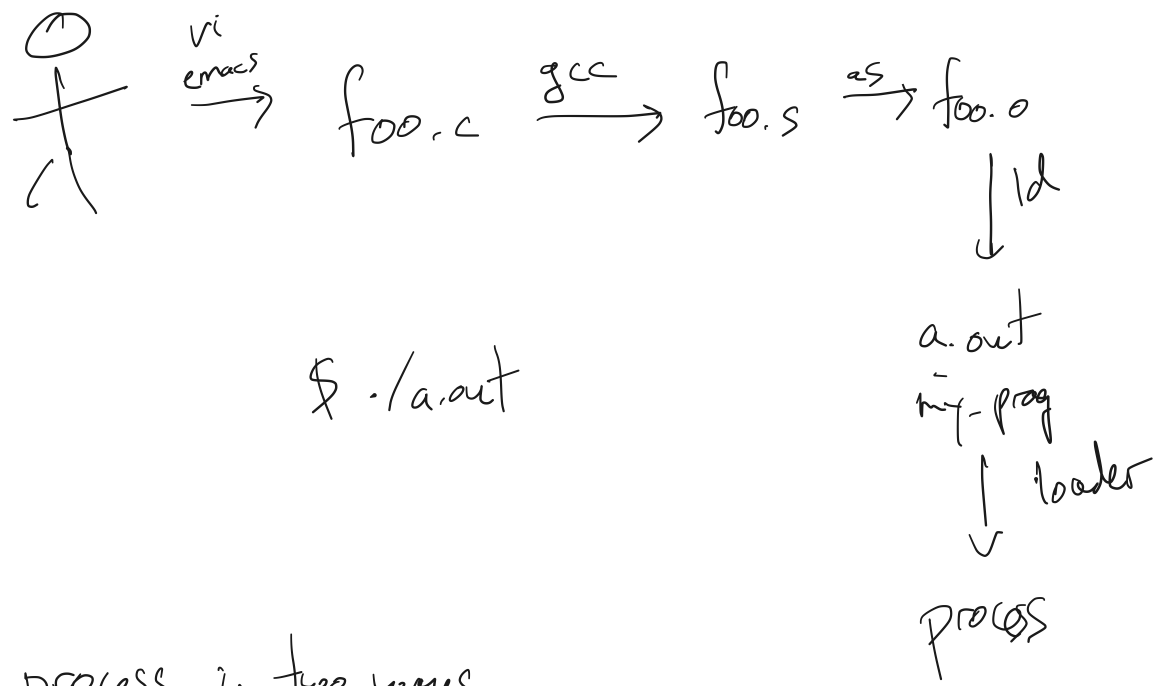 vi
emacs
foo.c
gcc
foo.s
as
foo.o
ld
a.out
my-prog
loader
process
$ ./a.out
process in two ways